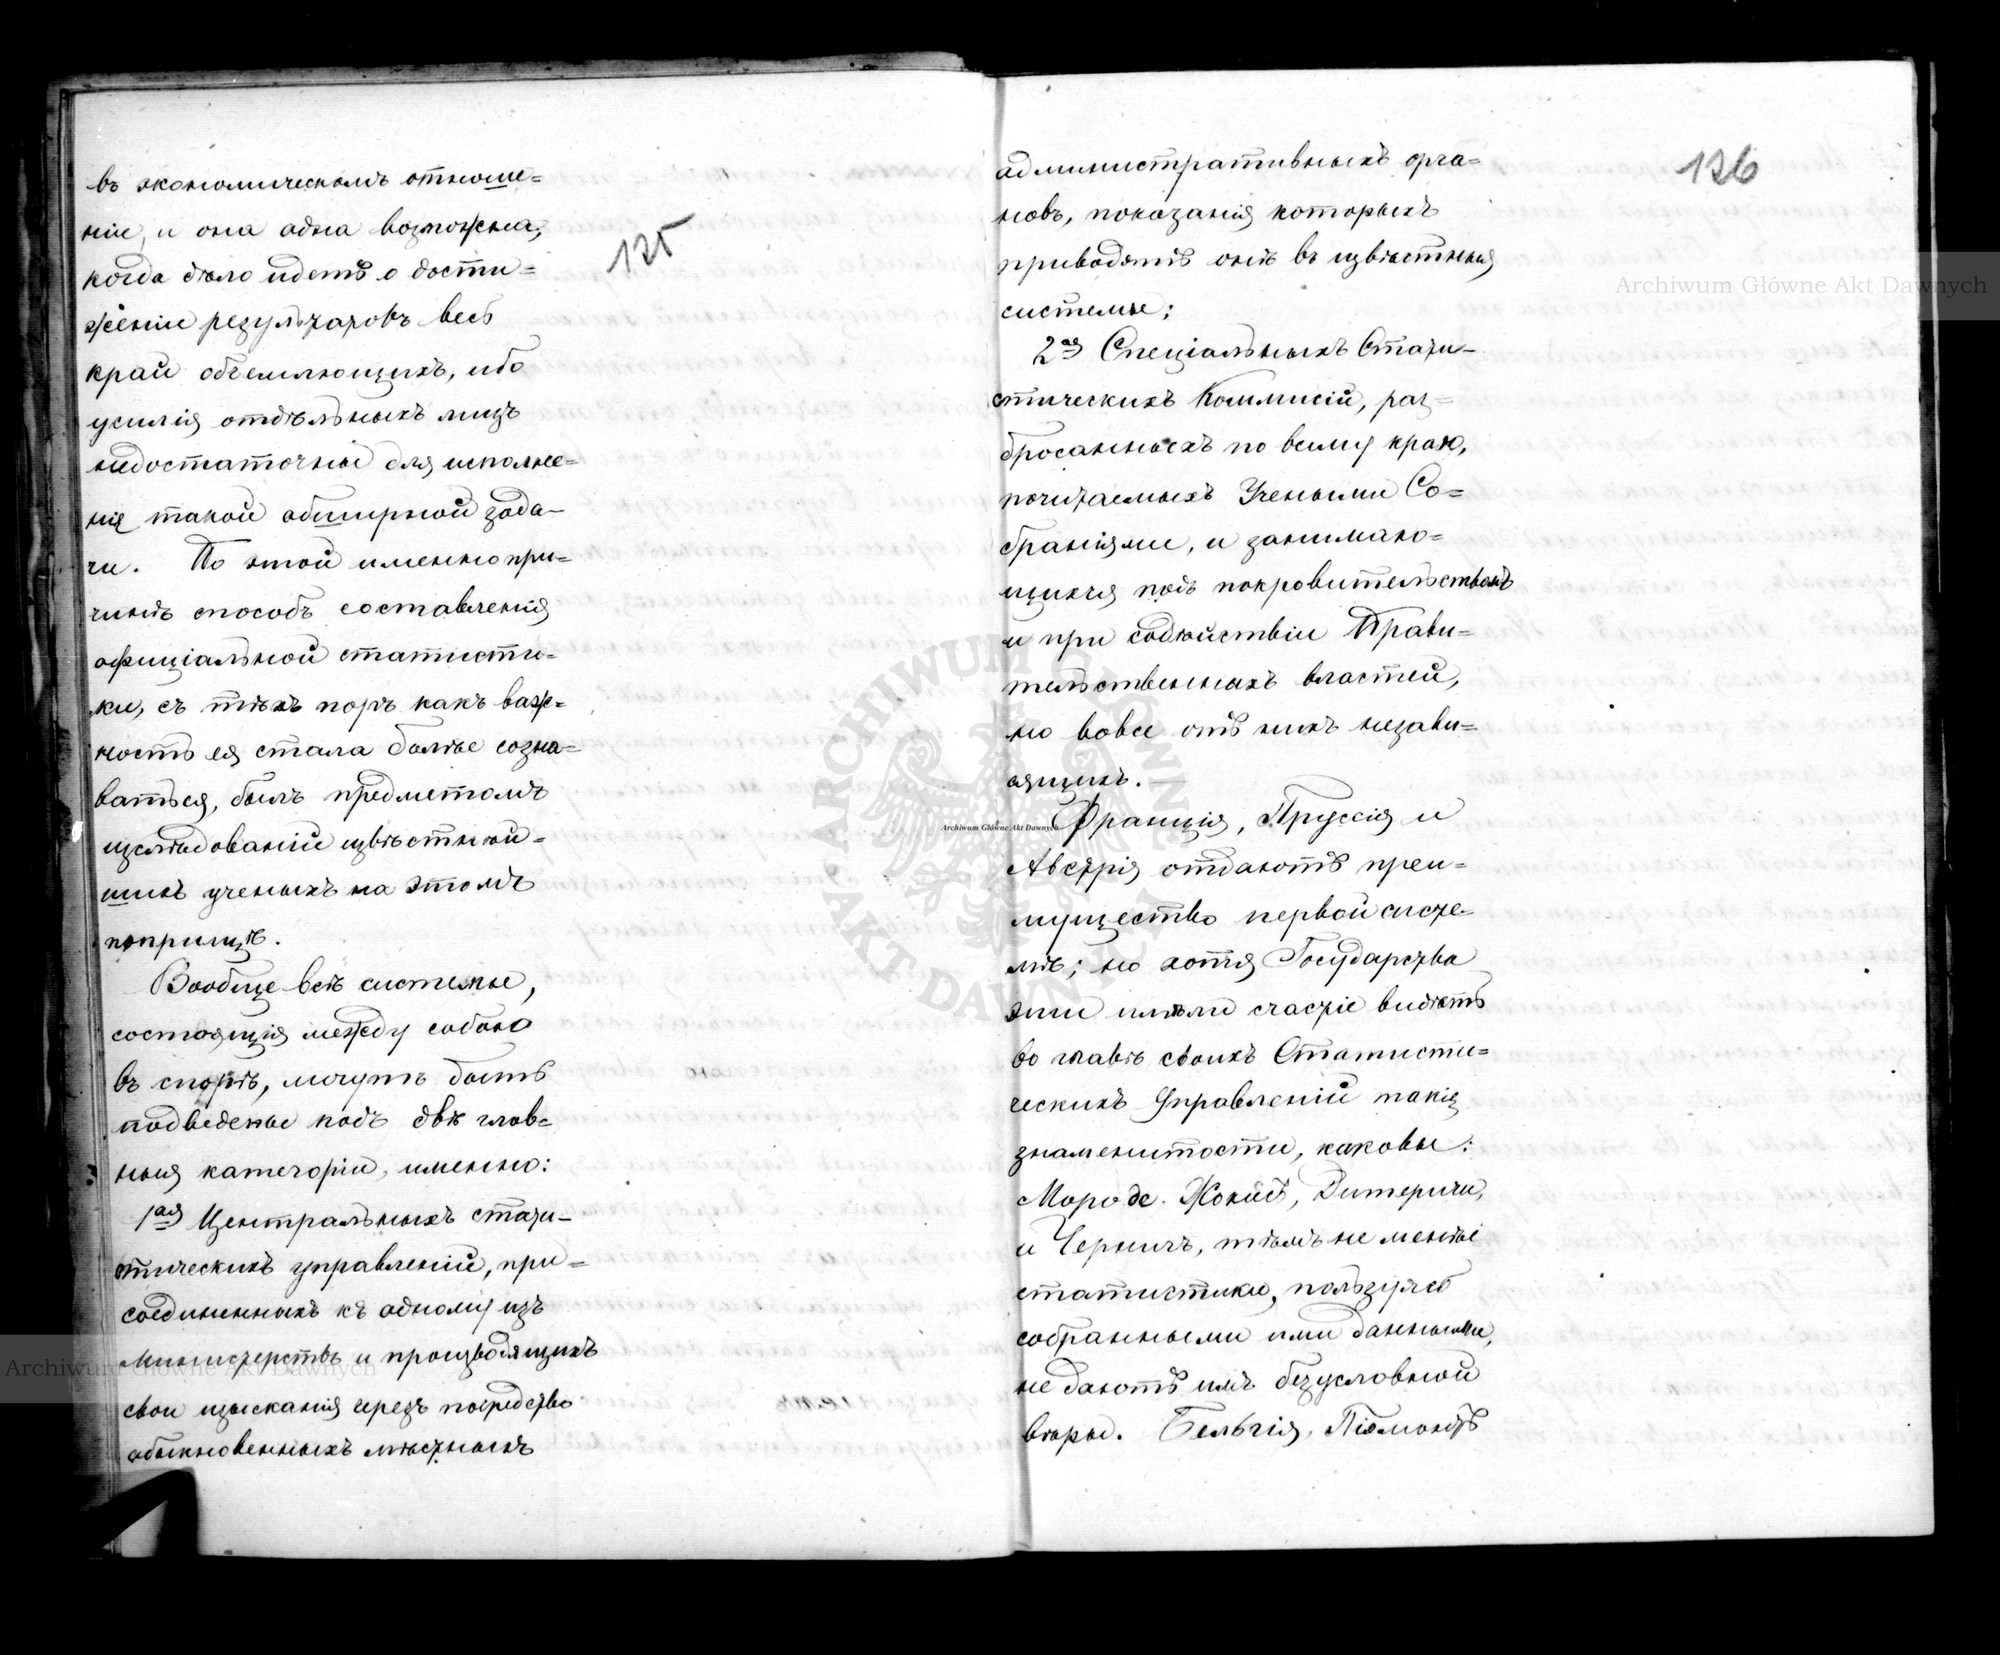 125
въ экономическомъ отноше=
ніи, и она одна возможна,
когда дѣло идетъ о дости=
женіи результатовъ весь
край объемлющихъ, ибо
усилія отдѣльныхъ лицъ
недостаточны для исполне=
нія такой обширной зада-
чи. По этой именно при=
чинѣ способъ составленія
официіальной статисти-
ки, съ тѣхъ поръ какъ важ=
ность ея стала болѣе созна=
ваться, былъ предметомъ
изслѣдованій извѣстнѣй=
шихъ ученыхъ на этомъ
поприщѣ.
Вообще всѣ системы,
состоящія между собою
въ спорѣ, могутъ быть
подведены подъ двѣ глав=
ныя категоріи, именно:
1ая Центральныхъ стати-
стическихъ управленій, при=
соединенныхъ къ одному изъ
Министерствъ и производящихъ
свои изысканія чрезъ посредство
обыкновенныхъ мѣстныхъ
126
административныхъ орга=
новъ, показанія которыхъ
приводятъ онѣ въ извѣстныя
системы;
2ая Спеціальныхъ Стати-
стическихъ Коммисій, раз=
бросанныхъ по всему краю,
почитаемыхъ Учеными Со=
браніями, и занимаю=
щихся подъ покровительствомъ
и при содѣйствіи Прави=
тельственныхъ властей,
но вовсе отъ нихъ незави=
сящихъ.—
Франція, Пруссія и
Австрія отдаютъ преи=
мущество первой систе-
мѣ; но хотя Государства
эти имѣли счастіе видѣть
во главѣ своихъ Статисти=
ческихъ Управленій такія
знаменитости, каковы:
Моро де Жонесъ, Дитеричи,
и Чернигъ, тѣмъ не менѣе
статистики, пользуясь
собранными ими данными,
не даютъ имъ безусловной
вѣры. Бельгія, Піэмонтъ
Archiwum Główne Akt Dawnych
Archiwum Główne Akt Dawnych
Archiwum Główne Akt Dawnych
ARCHIWUM GŁÓWNE AKT DAWNYCH